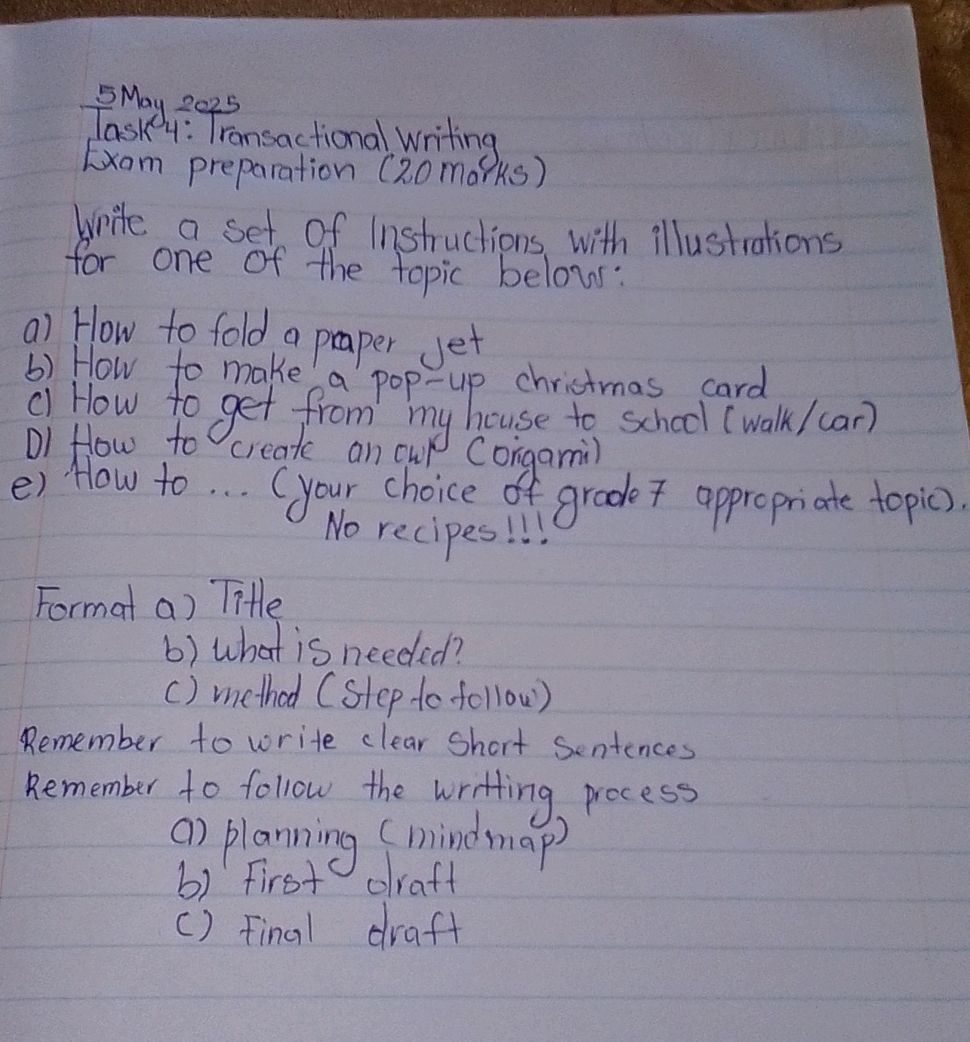 5 May 2025
Task 4: Transactional writing
Exam preparation (20 marks)
Write a set of Instructions with illustrations
for one of the topic below:
a) How to fold a praper jet
b) How to make a pop-up christmas card
c) How to get from my house to school (walk/car)
D) How to create an owl (origami)
e) How to ... (your choice of grade 7 appropriate topic).
No recipes!!!
Format a) Title
b) what is needed?
c) method (step to follow)
Remember to write clear short sentences
Remember to follow the writting process
a) planning (mindmap)
b) First draft
c) Final draft